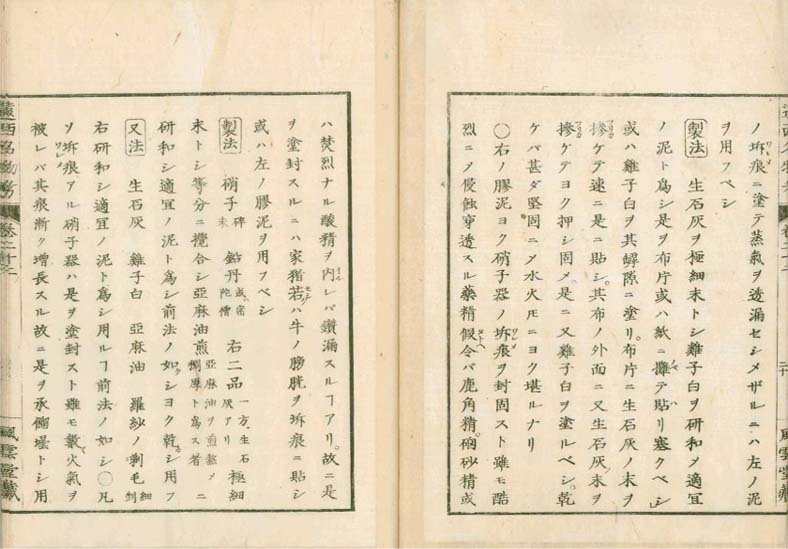 ノ坼痕ニ塗テ蒸氣ヲ透漏セシメザルニハ左ノ泥
ヲ用フベシ
製法 生石灰ヲ極細末トシ雞子白ヲ研和メ適宜
ノ泥ト爲シ是ヲ布片或ハ紙ニ攤テ貼リ塞クベシ
或ハ雞子白ヲ其罅隙ニ塗リ。布片ニ生石灰ノ末ヲ
摻ケテ速ニ是ニ貼シ。其布ノ外面ニ又生石灰末ヲ
摻ケテヨク押シ固メ。是ニ又雞子白ヲ塗ルベシ。乾
ケバ甚ダ堅固ニメ水火𪜈ニヨク堪ルナリ
○右ノ膠泥ヨク硝子器ノ坼痕ヲ封固スト雖モ酷
烈ニノ侵蝕穿透スル藥精假令バ鹿角精。硇砂精或
風雲堂藏
ハ焚烈ナル酸精ヲ内レバ鑽漏スルヿアリ。故ニ是
ヲ塗封スルニハ家猪若ハ牛ノ膀胱ヲ坼痕ニ貼シ
或ハ左ノ膠泥ヲ用フベシ
製法 硝子 碎末 鉛丹 或ハ密陀僧 右二品 一方、生石灰アリ 極細
末トシ等分ニ攪合シ亞麻油煎 亞麻油ヲ煎熬メ ト爲ス者 ニ
研和シ適宜ノ泥ト爲シ前法ノ如クシヨク乾シ用フ
又法 生石灰 雞子白 亞麻油 羅紗ノ剃毛 細剉
右研和シ適宜ノ泥ト爲シ用ルヿ前法ノ如シ○凡
ソ坼痕アル硝子器ハ是ヲ塗封スト雖モ數火氣ヲ
被レバ其痕漸ク增長スル故ニ是ヲ承僃壜トシ用
遠西名物考
卷二十二
風雲堂藏